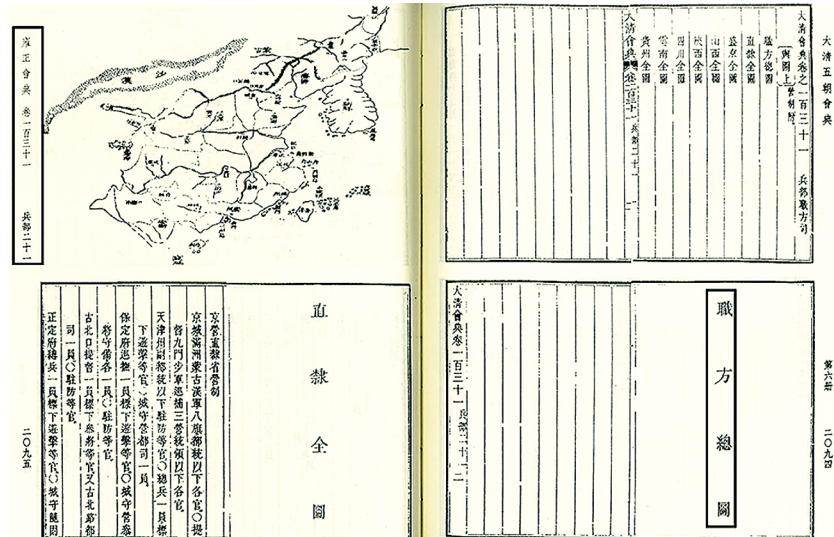 大清五朝會典
第六册 二〇九四
大清會典卷之一百三十一 兵部職方司
輿圖上 營制附
職方總圖
直隸全圖
盛京全圖
山西全圖
陝西全圖
四川全圖
雲南全圖
貴州全圖
大清會典 卷一百三十一 兵部二十一 一
職方總圖
大清會典卷一百三十一 兵部二十一 二
雍正會典 卷一百三十一 兵部二十一
二〇九五
沙漠
蒙古
直隸全圖
京營直隸省營制
京城滿洲蒙古漢軍八旗都統以下各官〇提
督九門步軍巡捕三營統領以下各官
天津州副都統以下駐防等官〇總兵一員標
下遊擊等官〇城守營都司一員
保定府巡撫一員標下遊擊等官〇城守營參
將守備各一員〇駐防等官
古北口提督一員標下參將等官又古北路都
司一員〇駐防等官
正定府總兵一員標下遊擊等官〇城守